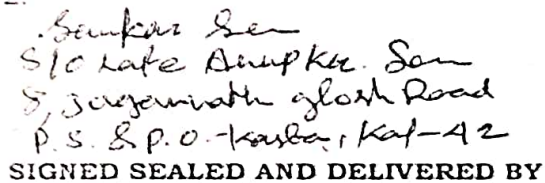 Sankar Sen
S/O Late Anup Kr. Sen
5, Jagannath Ghosh Road
P.S. & P.O.-Kasba, Kol-42
SIGNED SEALED AND DELIVERED BY